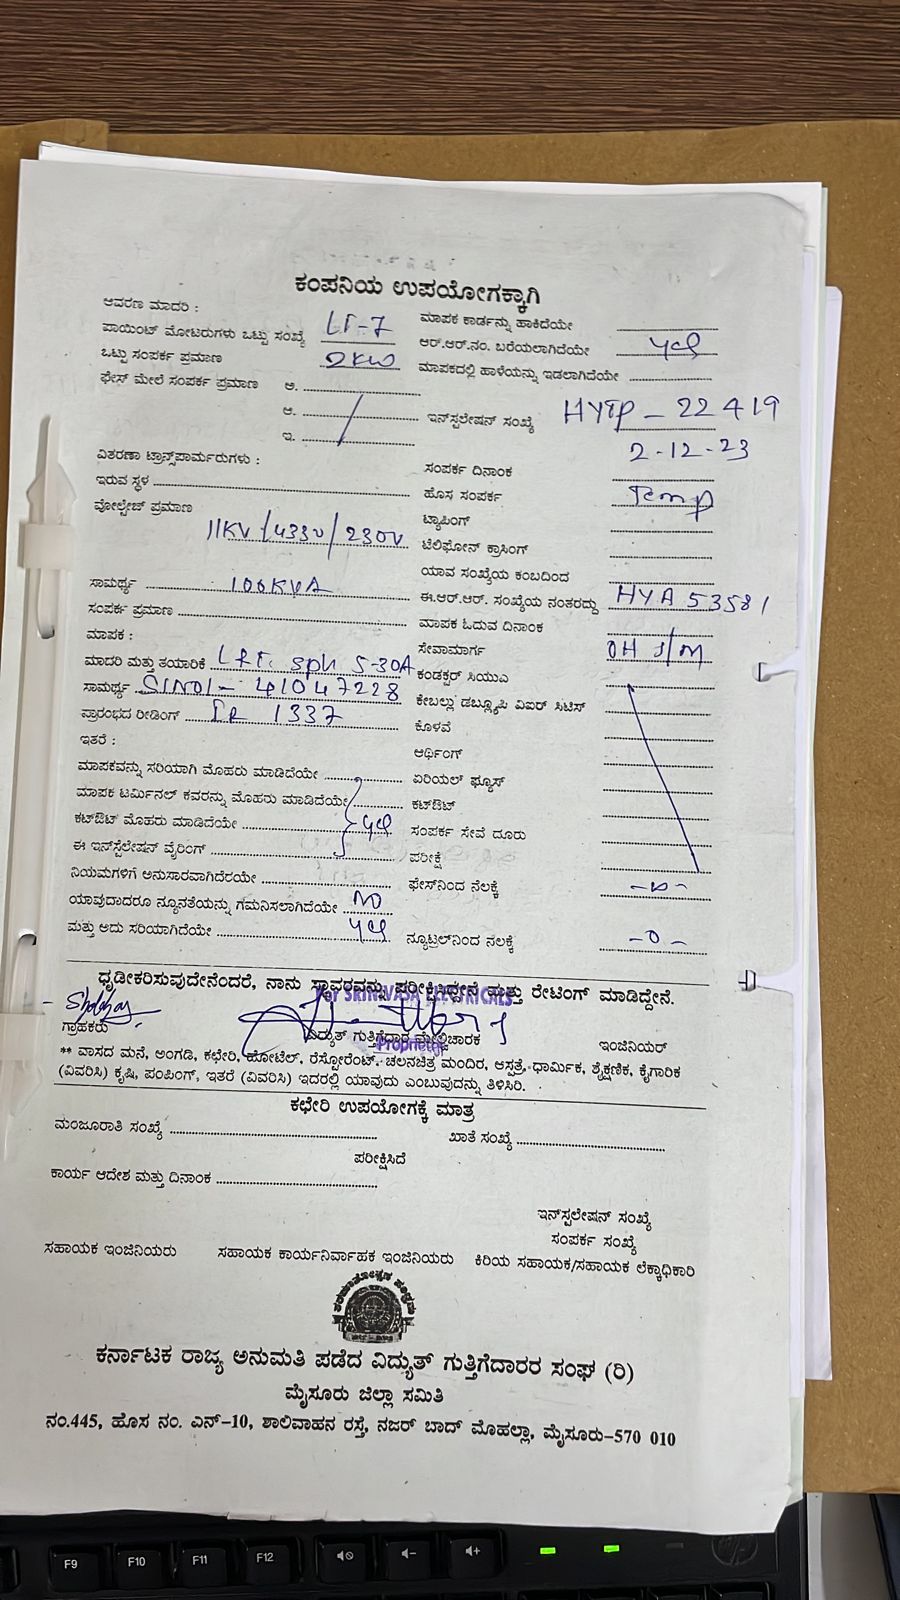 ಕಂಪನಿಯ ಉಪಯೋಗಕ್ಕಾಗಿ
ಆವರಣ ಮಾದರಿ :
ಪಾಯಿಂಟ್ ಮೋಟರುಗಳು ಒಟ್ಟು ಸಂಖ್ಯೆ LT-7
ಒಟ್ಟು ಸಂಪರ್ಕ ಪ್ರಮಾಣ 2KW
ಫೇಸ್ ಮೇಲೆ ಸಂಪರ್ಕ ಪ್ರಮಾಣ ಅ.
ಆ.
ಇ.
ವಿತರಣಾ ಟ್ರಾನ್ಸ್‌ಪಾರ್ಮರುಗಳು :
ಇರುವ ಸ್ಥಳ
ವೋಲ್ಟೇಜ್ ಪ್ರಮಾಣ
11KV/433V/230V
ಸಾಮರ್ಥ್ಯ 100KVA
ಸಂಪರ್ಕ ಪ್ರಮಾಣ
ಮಾಪಕ :
ಮಾದರಿ ಮತ್ತು ತಯಾರಿಕೆ L&T. Sph 5-30A
ಸಾಮರ್ಥ್ಯ Sl NO1- 41047228
ಪ್ರಾರಂಭದ ರೀಡಿಂಗ್ IR 1337
ಇತರೆ :
ಮಾಪಕವನ್ನು ಸರಿಯಾಗಿ ಮೊಹರು ಮಾಡಿದೆಯೇ
ಮಾಪಕ ಟರ್ಮಿನಲ್ ಕವರನ್ನು ಮೊಹರು ಮಾಡಿದೆಯೇ
ಕಟ್‌ಔಟ್ ಮೊಹರು ಮಾಡಿದೆಯೇ yes
ಈ ಇನ್‌ಸ್ಟೆಲೇಷನ್ ವೈರಿಂಗ್
ನಿಯಮಗಳಿಗೆ ಅನುಸಾರವಾಗಿದೆರೆಯೇ
ಯಾವುದಾದರೂ ನ್ಯೂನತೆಯನ್ನು ಗಮನಿಸಲಾಗಿದೆಯೇ NO
ಮತ್ತು ಅದು ಸರಿಯಾಗಿದೆಯೇ yes
ಮಾಪಕ ಕಾರ್ಡನ್ನು ಹಾಕಿದೆಯೇ
ಆರ್.ಆರ್.ನಂ. ಬರೆಯಲಾಗಿದೆಯೇ yes
ಮಾಪಕದಲ್ಲಿ ಹಾಳೆಯನ್ನು ಇಡಲಾಗಿದೆಯೇ
ಇನ್‌ಸ್ಟಲೇಷನ್ ಸಂಖ್ಯೆ HYTP-22419
ಸಂಪರ್ಕ ದಿನಾಂಕ 2-12-23
ಹೊಸ ಸಂಪರ್ಕ Temp
ಟ್ಯಾಪಿಂಗ್
ಟೆಲಿಫೋನ್ ಕ್ರಾಸಿಂಗ್
ಯಾವ ಸಂಖ್ಯೆಯ ಕಂಬದಿಂದ
ಈ.ಆರ್.ಆರ್. ಸಂಖ್ಯೆಯ ನಂತರದ್ದು HYA 53581
ಮಾಪಕ ಓದುವ ದಿನಾಂಕ
ಸೇವಾಮಾರ್ಗ OH S/M
ಕಂಡಕ್ಟರ್ ಸಿಯುಎ
ಕೇಬಲ್ಲು ಡಬ್ಲ್ಯೂಪಿ ವಿಐರ್ ಸಿಟಿಸ್
ಕೊಳವೆ
ಆರ್ಥಿಂಗ್
ಏರಿಯಲ್ ಫ್ಯೂಸ್
ಕಟ್‌ಔಟ್
ಸಂಪರ್ಕ ಸೇವೆ ದೂರು
ಪರೀಕ್ಷೆ
ಫೇಸ್‌ನಿಂದ ನೆಲಕ್ಕೆ
ನ್ಯೂಟ್ರಲ್‌ನಿಂದ ನೆಲಕ್ಕೆ -0-
ಧೃಡೀಕರಿಸುವುದೇನೆಂದರೆ, ನಾನು ಸ್ಥಾವರವನ್ನು ಪರೀಕ್ಷಿಸಿದ್ದೇನೆ ಮತ್ತು ರೇಟಿಂಗ್ ಮಾಡಿದ್ದೇನೆ.
For SRINIVASA ELECTRICALS
ಗ್ರಾಹಕರು ವಿದ್ಯುತ್ ಗುತ್ತಿಗೆದಾರ ಮೇಲ್ವಿಚಾರಕ ಇಂಜಿನಿಯರ್
Proprietor
** ವಾಸದ ಮನೆ, ಅಂಗಡಿ, ಕಛೇರಿ, ಹೋಟೆಲ್, ರೆಸ್ಟೋರೆಂಟ್, ಚಲನಚಿತ್ರ ಮಂದಿರ, ಆಸ್ಪತ್ರೆ, ಧಾರ್ಮಿಕ, ಶೈಕ್ಷಣಿಕ, ಕೈಗಾರಿಕ
(ವಿವರಿಸಿ) ಕೃಷಿ, ಪಂಪಿಂಗ್, ಇತರೆ (ವಿವರಿಸಿ) ಇದರಲ್ಲಿ ಯಾವುದು ಎಂಬುವುದನ್ನು ತಿಳಿಸಿರಿ.
ಕಛೇರಿ ಉಪಯೋಗಕ್ಕೆ ಮಾತ್ರ
ಮಂಜೂರಾತಿ ಸಂಖ್ಯೆ ಖಾತೆ ಸಂಖ್ಯೆ
ಪರೀಕ್ಷಿಸಿದೆ
ಕಾರ್ಯ ಆದೇಶ ಮತ್ತು ದಿನಾಂಕ
ಇನ್‌ಸ್ಟಲೇಷನ್ ಸಂಖ್ಯೆ
ಸಂಪರ್ಕ ಸಂಖ್ಯೆ
ಸಹಾಯಕ ಇಂಜಿನಿಯರು ಸಹಾಯಕ ಕಾರ್ಯನಿರ್ವಾಹಕ ಇಂಜಿನಿಯರು ಕಿರಿಯ ಸಹಾಯಕ/ಸಹಾಯಕ ಲೆಕ್ಕಾಧಿಕಾರಿ
ಕರ್ನಾಟಕ ರಾಜ್ಯ ಅನುಮತಿ ಪಡೆದ ವಿದ್ಯುತ್ ಗುತ್ತಿಗೆದಾರರ ಸಂಘ (ರಿ)
ಮೈಸೂರು ಜಿಲ್ಲಾ ಸಮಿತಿ
ನಂ.445, ಹೊಸ ನಂ. ಎನ್-10, ಶಾಲಿವಾಹನ ರಸ್ತೆ, ನಜರ್ ಬಾದ್ ಮೊಹಲ್ಲಾ, ಮೈಸೂರು-570 010
F9 F10 F11 F12
hp